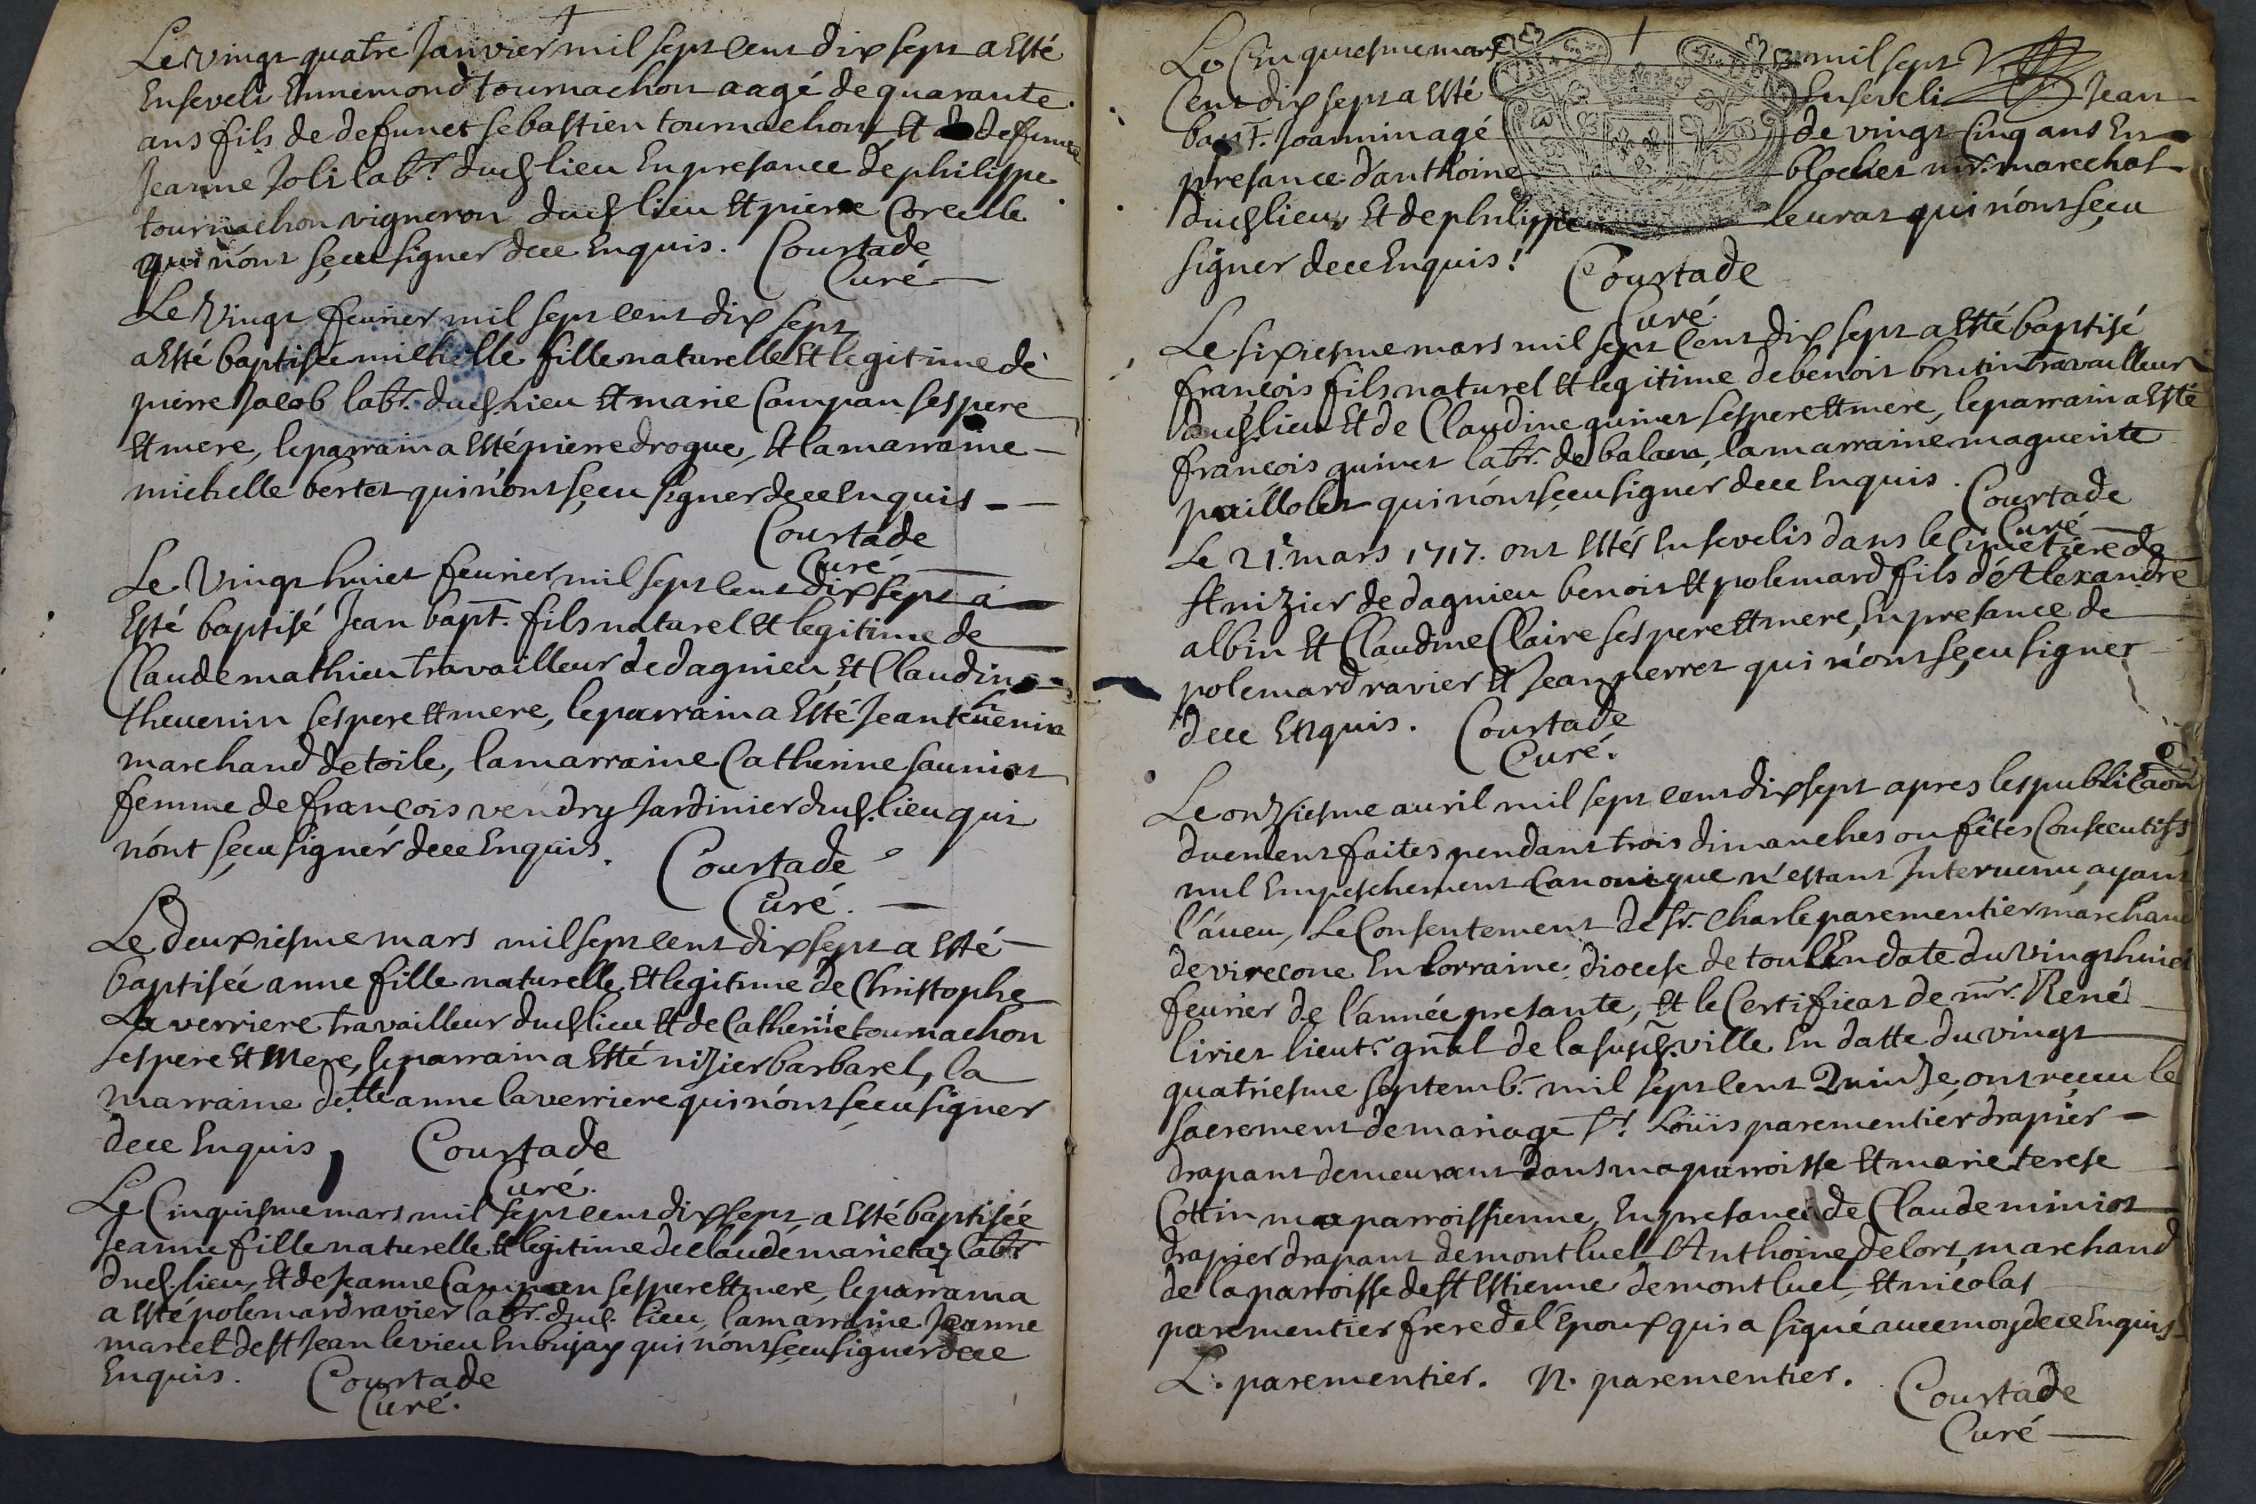 Le vingt quatre Janvier mil sept cent dix sept a esté
Enseveli Ennemond tournachon aagé de quarante
ans fils de defunct sebastien tournachon et de defunte
Jeanne Joli labr. dud. lieu En presance de philippe
tournachon vigneron dud. lieu et pierre Coreille
qui n'ont sçeu signer dece Enquis. Courtade
Curé
Le Vingt feuvrier mil sept cent dix sept
a esté baptisée michelle fille naturelle et legitime de
pierre Jacob labr. dud. lieu et marie Campan ses pere
et mere, le parrain a esté pierre drogue, et la marraine
michelle bertet qui n'ont sçeu signer dece Enquis
Courtade
Curé
Le Vingt huict feuvrier mil sept cent dix sept a
Esté baptisé Jean bapt. fils naturel et legitime de
Claude mathieu travailleur de dagnieu et Claudine
thevenin ses pere et mere, le parrain a esté Jean tevenin
marchand de toile, la marraine Catherine saunier
femme de françois vendry Jardinier dud. lieu qui
n'ont sçeu signér dece Enquis. Courtade
Curé.
Le deuxiesme mars mil sept cent dix sept a esté
baptisée anne fille naturelle et legitime de Christophe
La verriere travailleur dud. lieu et de Catherine tournachon
ses pere et mere, le parrain a esté nizier barbarel, la
marraine delle anne laverriere qui n'ont sçeu signer
dece Enquis, Courtade
Curé.
Le Cinquisme mars mil sept cent dix sept a esté baptisée
Jeanne fille naturelle et legitime de claude labr
dud. lieu, et de Jeanne Campan ses pere et mere, le parrain a
a esté polemard ravier labr. dud. lieu, la marraine Jeanne
martel de st Jean le vieu En bujay qui n'ont sçeu signer dece
Enquis. Courtade
Curé.
Le Cinquiesme mars mil sept
Cent dix sept a esté Enseveli Jean
bapt. Joannin agé de vingt Cinq ans En
presance d'anthoine blochet mr. marechal
dud. lieu, et de philippe leurat qui n'ont sçeu
signer dece Enquis. Courtade
Curé.
Le sixiesme mars mil sept cent dix sept a esté baptisé
françois fils naturel et legitime de benoit brutin travailleur
dud. lieu et de Claudine quinet ses pere et mere, le parrain a esté
françois quinet labr. de balan, la marraine maguerite
paillolet qui n'ont sçeu signer dece Enquis. Courtade
Curé
Le 21. mars 1717. ont estés Ensevelis dans le Cimetiere de
st nizier de dagnieu benoit et polemard fils d'Alexandre
albin et Claudine Claire ses pere et mere, En presance de
polemard ravier et Jean perret qui n'ont sçeu signer
dece Enquis. Courtade
Curé.
Le onziesme avril mil sept cent dix sept apres les publicaon
duement faites pendant trois dimanches ou fêtes Consecutifs,
nul Empeschement Canonique n'estant Intervenu, ayant
l'aveu, Le Consentement de sr. Charle parementier marchand
de virecone En Lorraine, diocese de toul En date du vingt huict
feuvrier de l'année presante, et le Certificat de mr. René
liriet lieut. gnal de la susd. ville En datte du vingt
quatriesme septemb. mil sept cent Quinze, ont reçeu le
sacrement de mariage sr. Loüis parementier drapier
drapant demeurant dans ma parroisse et marie terese
Cottin ma parroissienne, En presance de Claude miniot
drapier drapant de montluel Anthoine delort marchand
de la parroisse de st Estienne de montluel et nicolas
parementier frere de l'Epoux qui a signé avec moy dece Enquis
L. parementier. N. parementier. Courtade
Curé